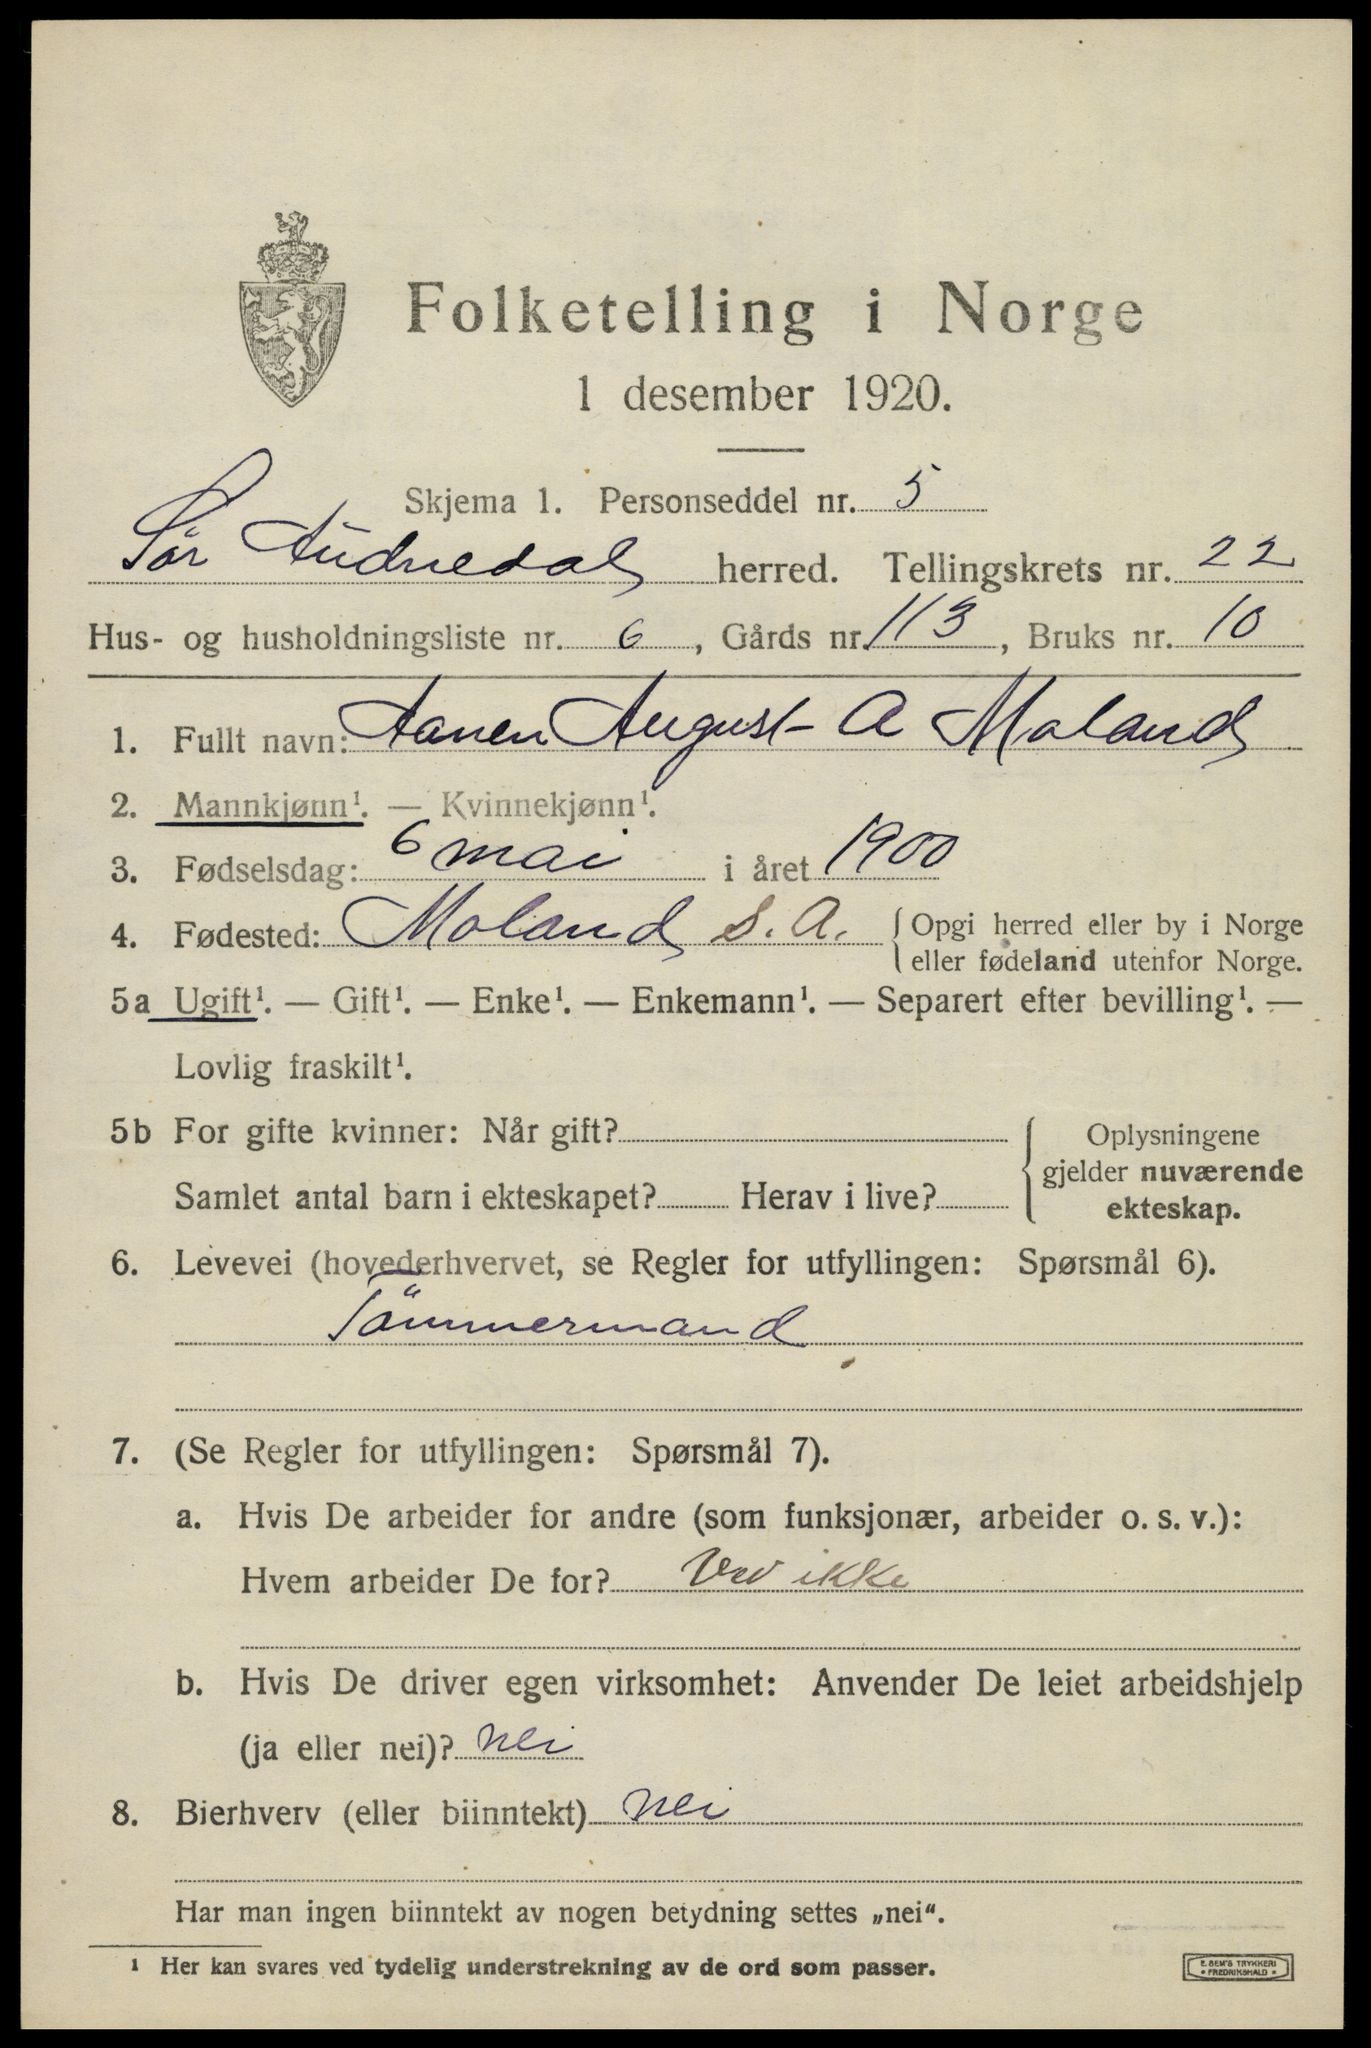 Folketelling i Norge
1 desember 1920.
Skjema 1. Personseddel nr. 5
Sör Audnedal herred. Tellingskrets nr. 22
Hus- og husholdningsliste nr. 6, Gårds nr. 113, Bruks nr. 10
1. Fullt navn: Aanen August A Moland
2. Mannkjønn¹. — Kvinnekjønn¹.
3. Fødselsdag: 6 mai i året 1900
4. Fødested: Moland S. A. { Opgi herred eller by i Norge
eller fødeland utenfor Norge.
5a Ugift¹. — Gift¹. — Enke¹. — Enkemann¹. — Separert efter bevilling¹. —
Lovlig fraskilt¹.
5b For gifte kvinner: Når gift? { Oplysningene
gjelder nuværende
Samlet antal barn i ekteskapet? Herav i live?
ekteskap.
6. Levevei (hovederhvervet, se Regler for utfyllingen: Spørsmål 6).
Tömmermand
7. (Se Regler for utfyllingen: Spørsmål 7).
a. Hvis De arbeider for andre (som funksjonær, arbeider o. s. v.):
Hvem arbeider De for? ikke
b. Hvis De driver egen virksomhet: Anvender De leiet arbeidshjelp
(ja eller nei)? nei
8. Bierhverv (eller biinntekt) nei
Har man ingen biinntekt av nogen betydning settes „nei“.
¹ Her kan svares ved tydelig understrekning av de ord som passer.
E. SEM'S TRYKKERI
• FREDRIKSHALD •